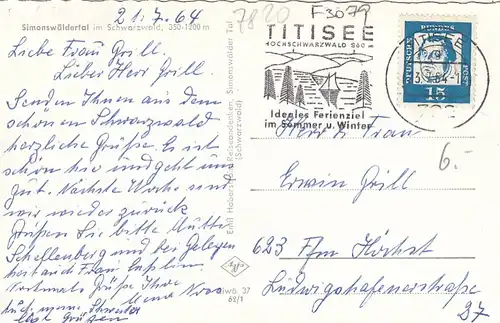 Simonswäldertal im Schwarzwald, 350-1200 m
21.7.64
Liebe Frau Grill.
Lieber Herr Grill.
Senden Ihnen aus dem
schönen Schwarzwald
herzliche Grüße. Es ist
schön hier und geht uns
gut. Nächste Woche sind
wir wieder zurück
Grüßen Sie bitte Mutter
Schellenberg und bei Gelegen
heit auch Frau
Nochmals Grüße Ihre
Auch meine Schwester
läßt Grüßen
Emil Haberstroh, Reiseandenken, Simonswälder Tal
(Schwarzwald)
Siwä. 37
62/1
7820
F3079
TITISEE
HOCHSCHWARZWALD 860 m
Ideales Ferienziel
im Sommer u. Winter
DEUTSCHE BUNDESPOST
15
6.-
Herrn Frau
Erwin Grill
623 Ffm Höchst
Ludwigshafenerstraße
27